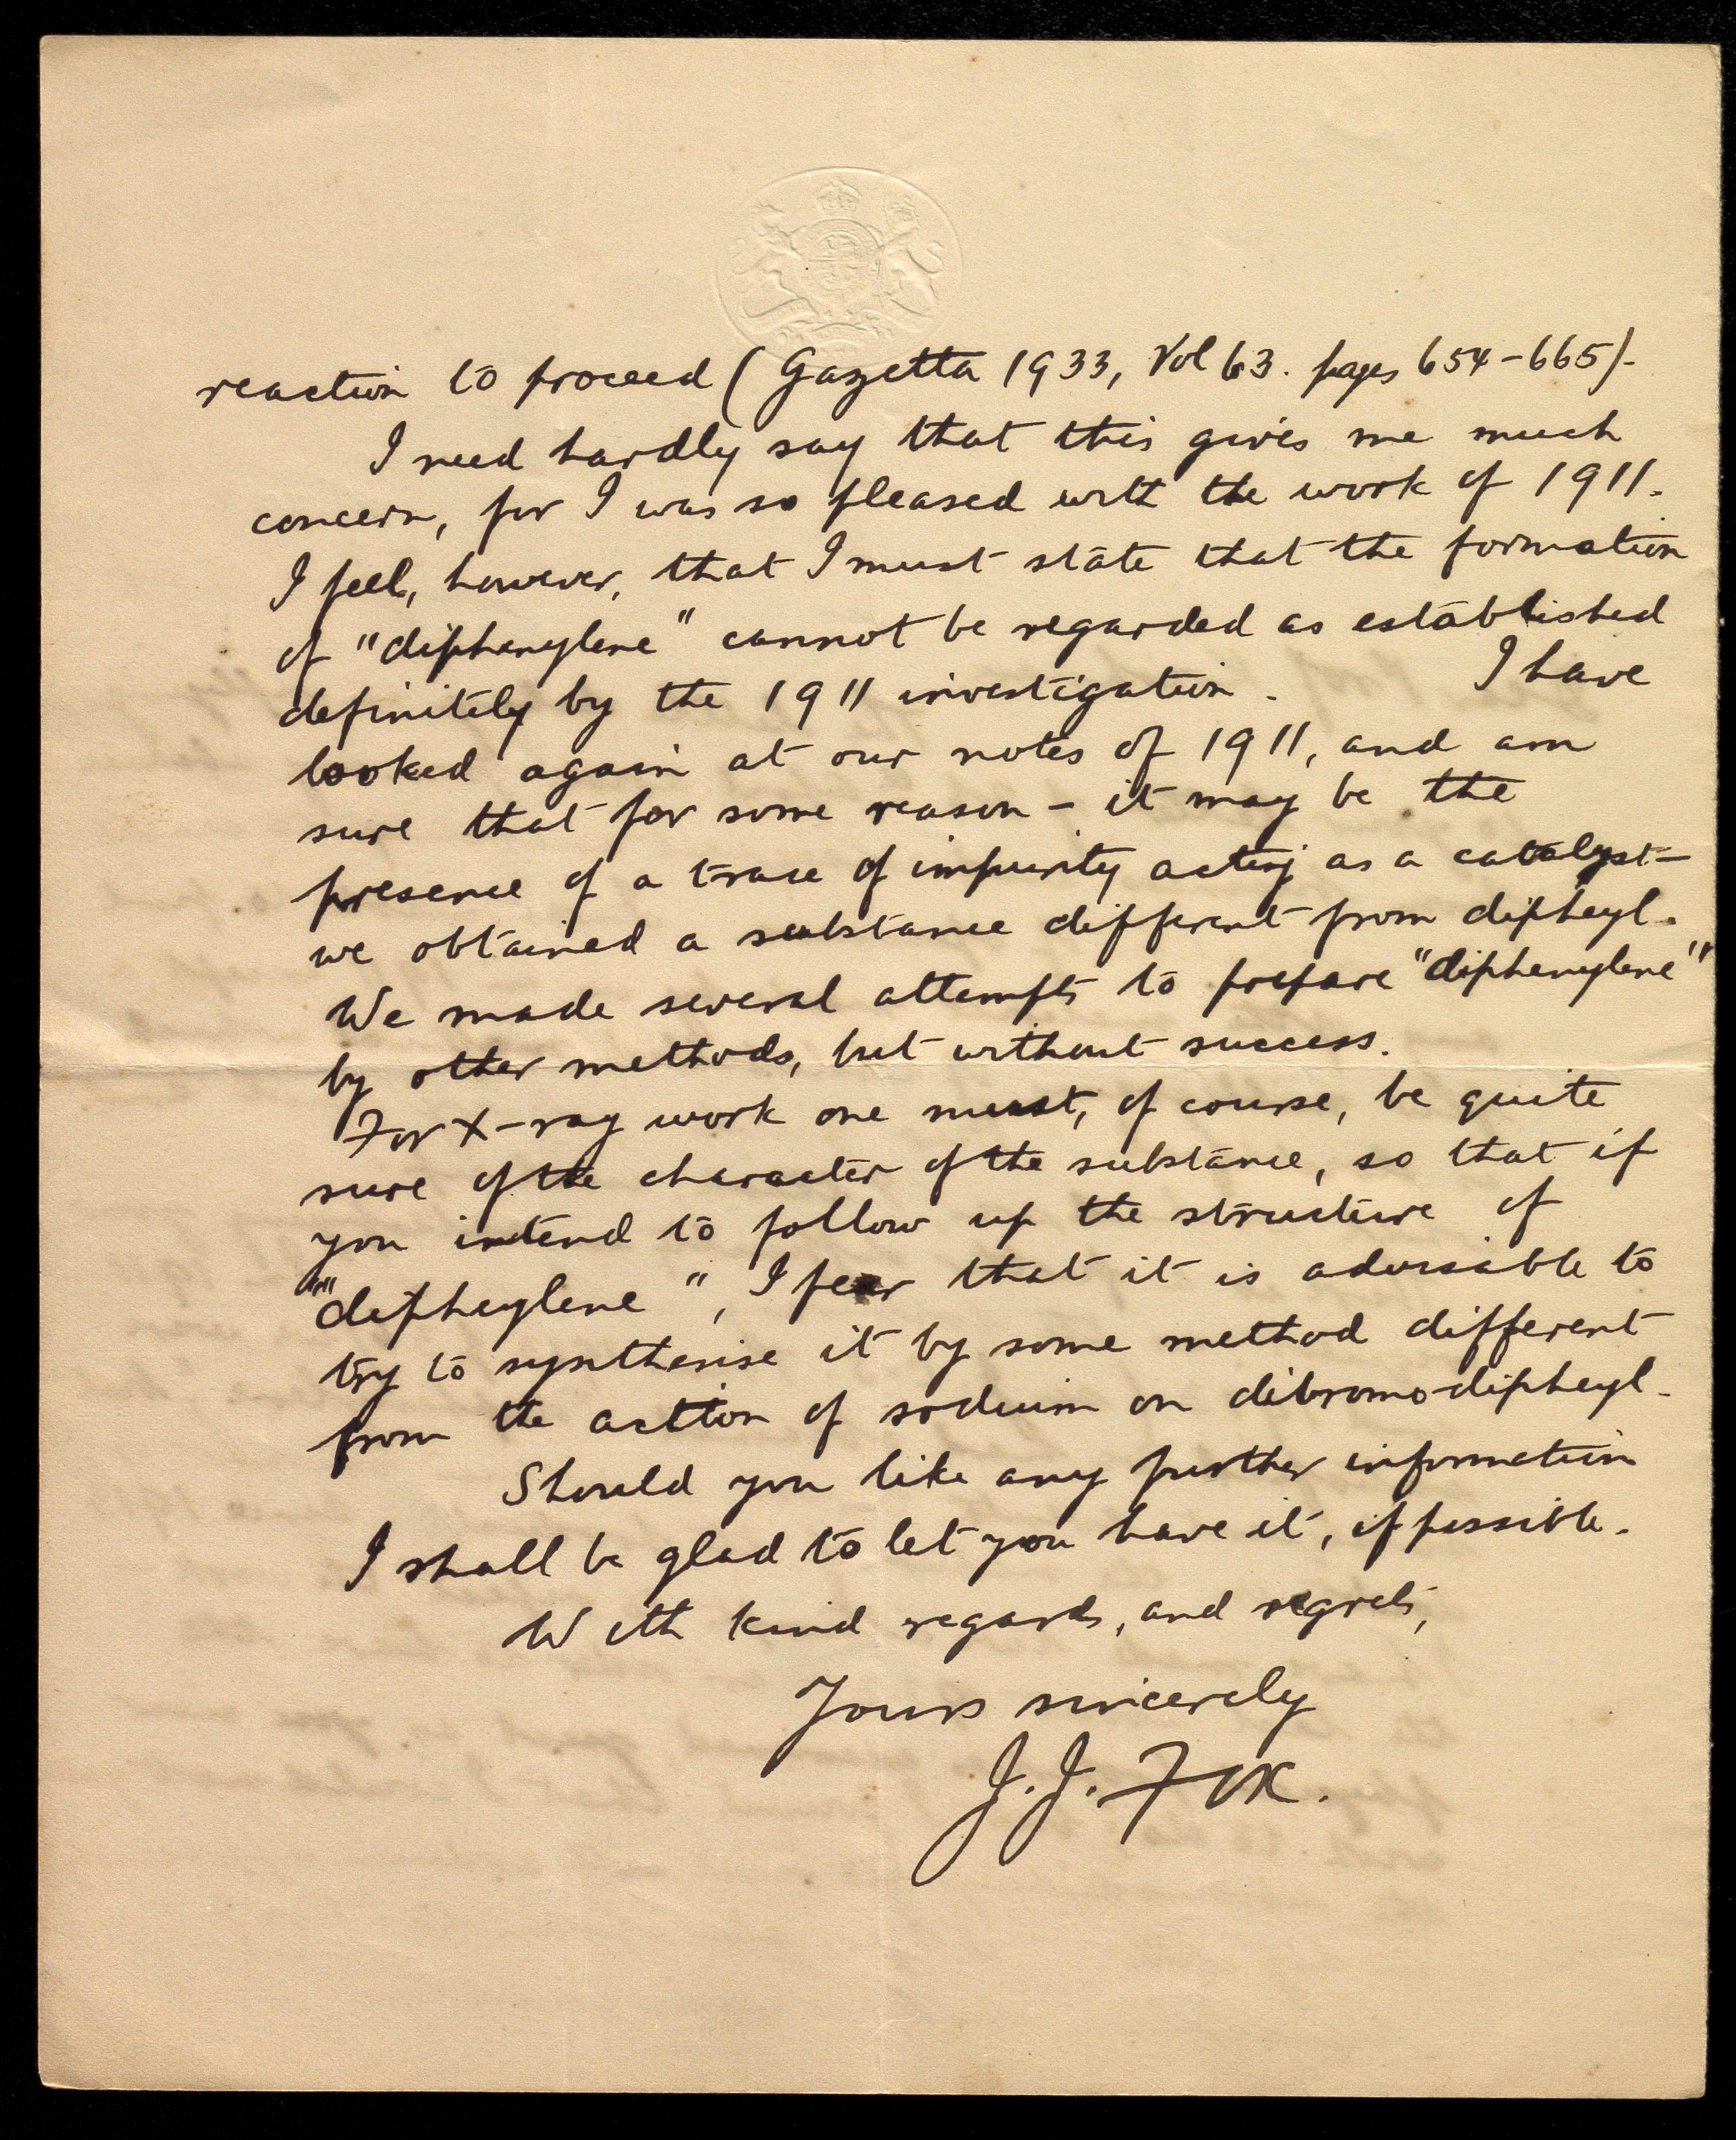 reaction to proceed (Gazetta 1933, Vol 63. pages 654-665).
I need hardly say that this gives me much
concern, for I was so pleased with the work of 1911.
I feel, however, that I must state that the formation
of "diphenylene" cannot be regarded as established
definitely by the 1911 investigation. I have
looked again at our notes of 1911, and am
sure that for some reason - it may be the
presence of a trace of impurity acting as a catalyst -
we obtained a substance different from diphenyl.
We made several attempts to prepare "diphenylene"
by other methods, but without success.
For X-ray work one must, of course, be quite
sure of the character of the substance, so that if
you intend to follow up the structure of
"diphenylene", I fear that it is advisable to
try to synthesise it by some method different
from the action of sodium on dibromo-diphenyl.
Should you like any further information
I shall be glad to let you have it, if possible.
With kind regards, and regrets,
Yours sincerely
J. J. Fox.